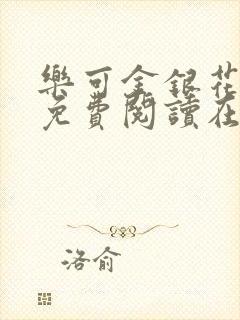 樂可金銀花
免費閱讀在
洛俞